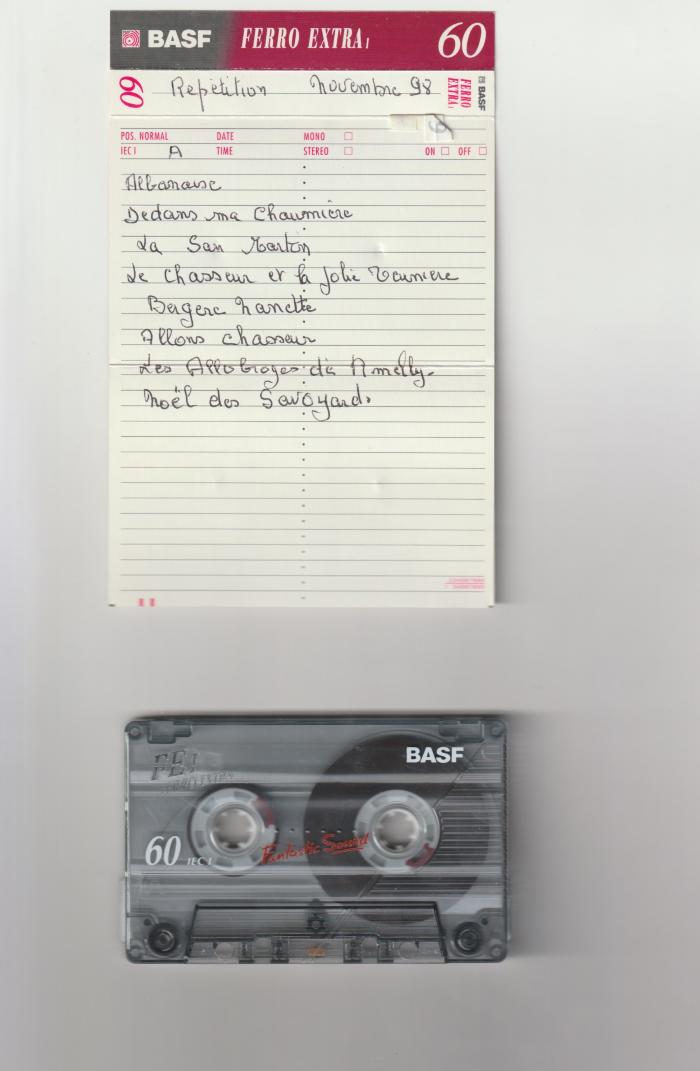 BASF FERRO EXTRA I 60
60 Repetition Novembre 98 FERRO EXTRA I BASF
POS. NORMAL DATE MONO
IEC I A TIME STEREO ON OFF
Albanaise
Dedans ma Chaumière
La San Martin
Le Chasseur et la Jolie Meunière
Bergère Nanette
Allons chasseur
Les Allobroges d'à
Noël des Savoyards
BASF
FE I
FERRO EXTRA
60 IEC I
Fantastic Sound